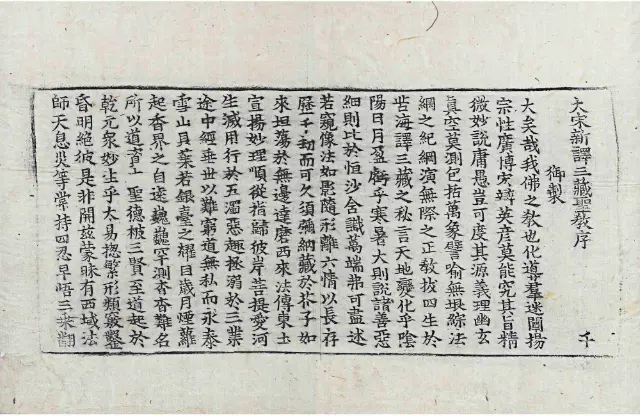 大宋新譯三藏聖敎序
御製
大矣哉我佛之敎也化導羣迷闡揚
宗性廣博宏辯英彦莫能究其旨精
微妙說庸愚豈可度其源義理幽玄
真空莫測包括萬象譬喻無垠綜法
網之紀綱演無際之正敎拔四生於
苦海譯三藏之秘言天地變化乎陰
陽日月盈虧乎寒暑大則說諸善惡
細則比於恒沙含識萬端弗可盡述
若窺像法如影隨形離六情以長存
歷千劫而可久須彌納藏於芥子如
來坦蕩於無邊達磨西來法傳東土
宣揚妙理順從指歸彼岸菩提愛河
生滅用行於五濁惡趣拯溺於三業
途中經垂世以難窮道無私而永泰
雪山貝葉若銀臺之耀目歲月煙蘿
起香界之自遠巍巍罕測杳杳難名
所以道資十聖德被三賢至道起於
乾元衆妙生乎太易揔繁形類竅鑿
昏明絶彼是非開兹蒙昧有西域法
師天息災等常持四忍早悟三乘翻